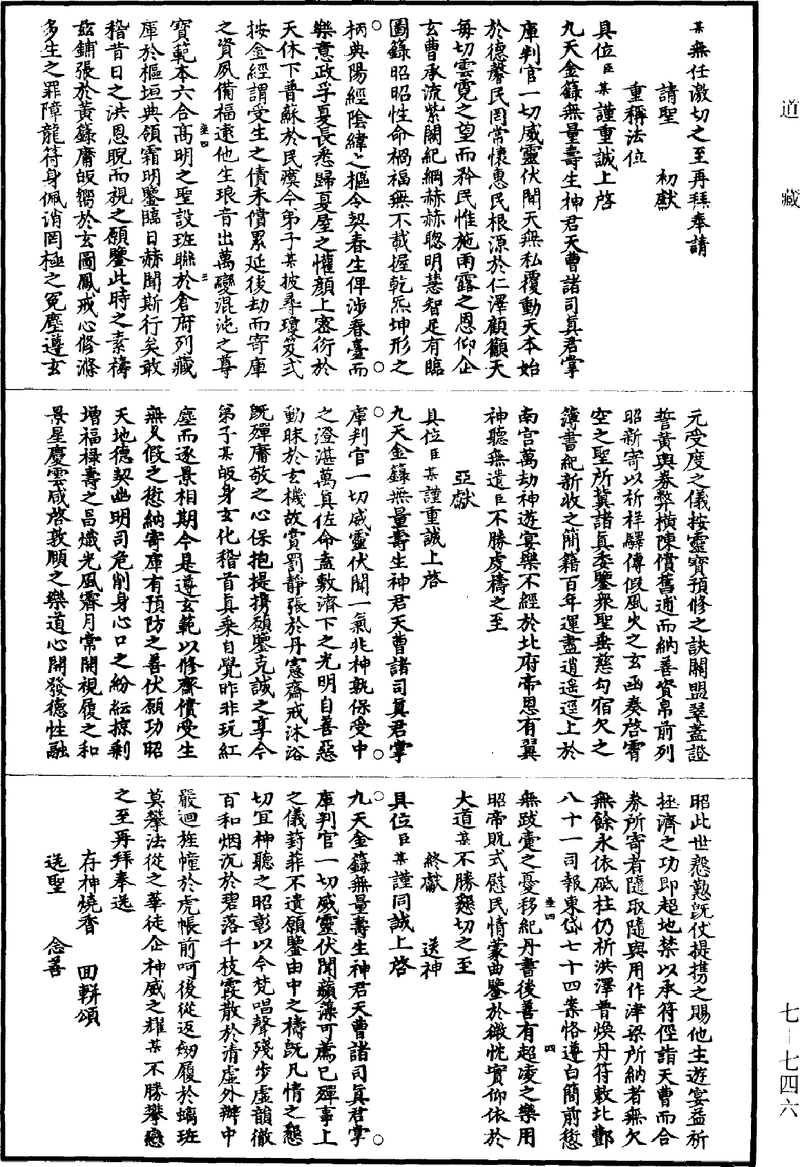 道藏
某無任激切之至再拜奉請
請聖　初獻
重稱法位
具位臣某謹重誠上啓
九天金籙無量壽生神君天曹諸司真君掌
庫判官一切威靈伏聞天無私覆動天本始
於德馨民罔常懷惠民根源於仁澤顧顧天
每切雲霓之望而矜民惟施雨露之恩仰企
玄曹承流紫闕紀綱赫赫聰明慧智足有臨
圖籙昭昭性命禍福無不載握乾炁坤形之
柄典陽經陰緯之樞今契春生俾涉春臺而
樂意政孚夏長悉歸夏屋之懽顏上密衍於
天休下普蘇於民瘼今弟子某披尋瓊笈式
按金經謂受生之債未償累延後劫而寄庫
之資夙備福逮他生琅音出萬變混沌之尊
寶範本六合高明之聖設班聯於倉府列藏
庫於樞垣典領霜明鑒臨日赫聞斯行矣敢
稽昔日之洪恩睨而視之願鑒此時之素禱
玆鋪張於黃籙庸皈嚮於玄圖鳳戒心修滌
多生之罪障龍符身佩消罔極之冤塵遵玄
元受度之儀按靈寶預修之訣關盟翠蓋證
誓黃輿券弊橫陳償舊逋而納善資帛前列
昭新寄以祈祥驛傳假風火之玄函奏啓霄
空之聖所冀諸真委鑒衆聖垂慈勾宿欠之
簿書紀新收之簡籍百年運盡逍遥逕上於
南宫萬劫神遊宴樂不經於北府帝恩有翼
神聽無遺臣不勝虔禱之至
亞獻
具位臣某謹重誠上啓
九天金籙無量壽生神君天曹諸司真君掌
庫判官一切威靈伏聞一氣兆神孰保受中
之澄湛萬真佐命盍敷濟下之光明自善惡
動昧於玄機故賞罰靜張於丹憲齋戒沐浴
旣殫庸敬之心保抱提攜願鑒克誠之享今
弟子某皈身玄化稽首真乘自覺昨非玩紅
塵而逐景相期今是遵玄範以修齋償受生
無久假之愆納寄庫有預防之善伏願功昭
天地德契幽明司危削身心口之紛紜掠剩
增福祿壽之昌熾光風霽月常開視履之和
景星慶雲咸啓敦願之樂道心開發德性融
昭此世懇懃旣仗提携之賜他生遊宴益祈
拯濟之功即超地禁以承符徑詣天曹而合
券所寄者隨取隨與用作津梁所納者無欠
無餘永依砥柱仍祈洪澤普煥丹符敕北酆
八十一司報東岱七十四案恪遵白簡前愆
無跋疐之憂移紀丹書後善有超凌之樂用
昭帝旣式慰民情蒙曲鑒於微忱實仰依於
大道某不勝懇切之至
終獻　送神
具位臣某謹同誠上啓
九天金籙無量壽生神君天曹諸司真君掌
庫判官一切威靈伏聞蘋藻可薦已殫事上
之儀葑菲不遺願鑒由中之禱旣凡情之懇
切宜神聽之昭彰以今梵唱聲殘步虛韻徹
百和烟沉於碧落千枝霞散於清虛外辦中
嚴迴旌幢於虎帳前呵後從返劒履於螭班
莫攀法從之華徒企神威之耀某不勝攀戀
之至再拜奉送
存神燒香　回軿頌
送聖　念善
七—七四六